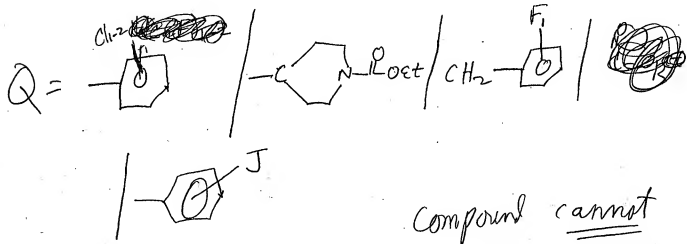 Cl1-2 F
Q = / C N O OEt / CH2 /
/ J
Compound cannot